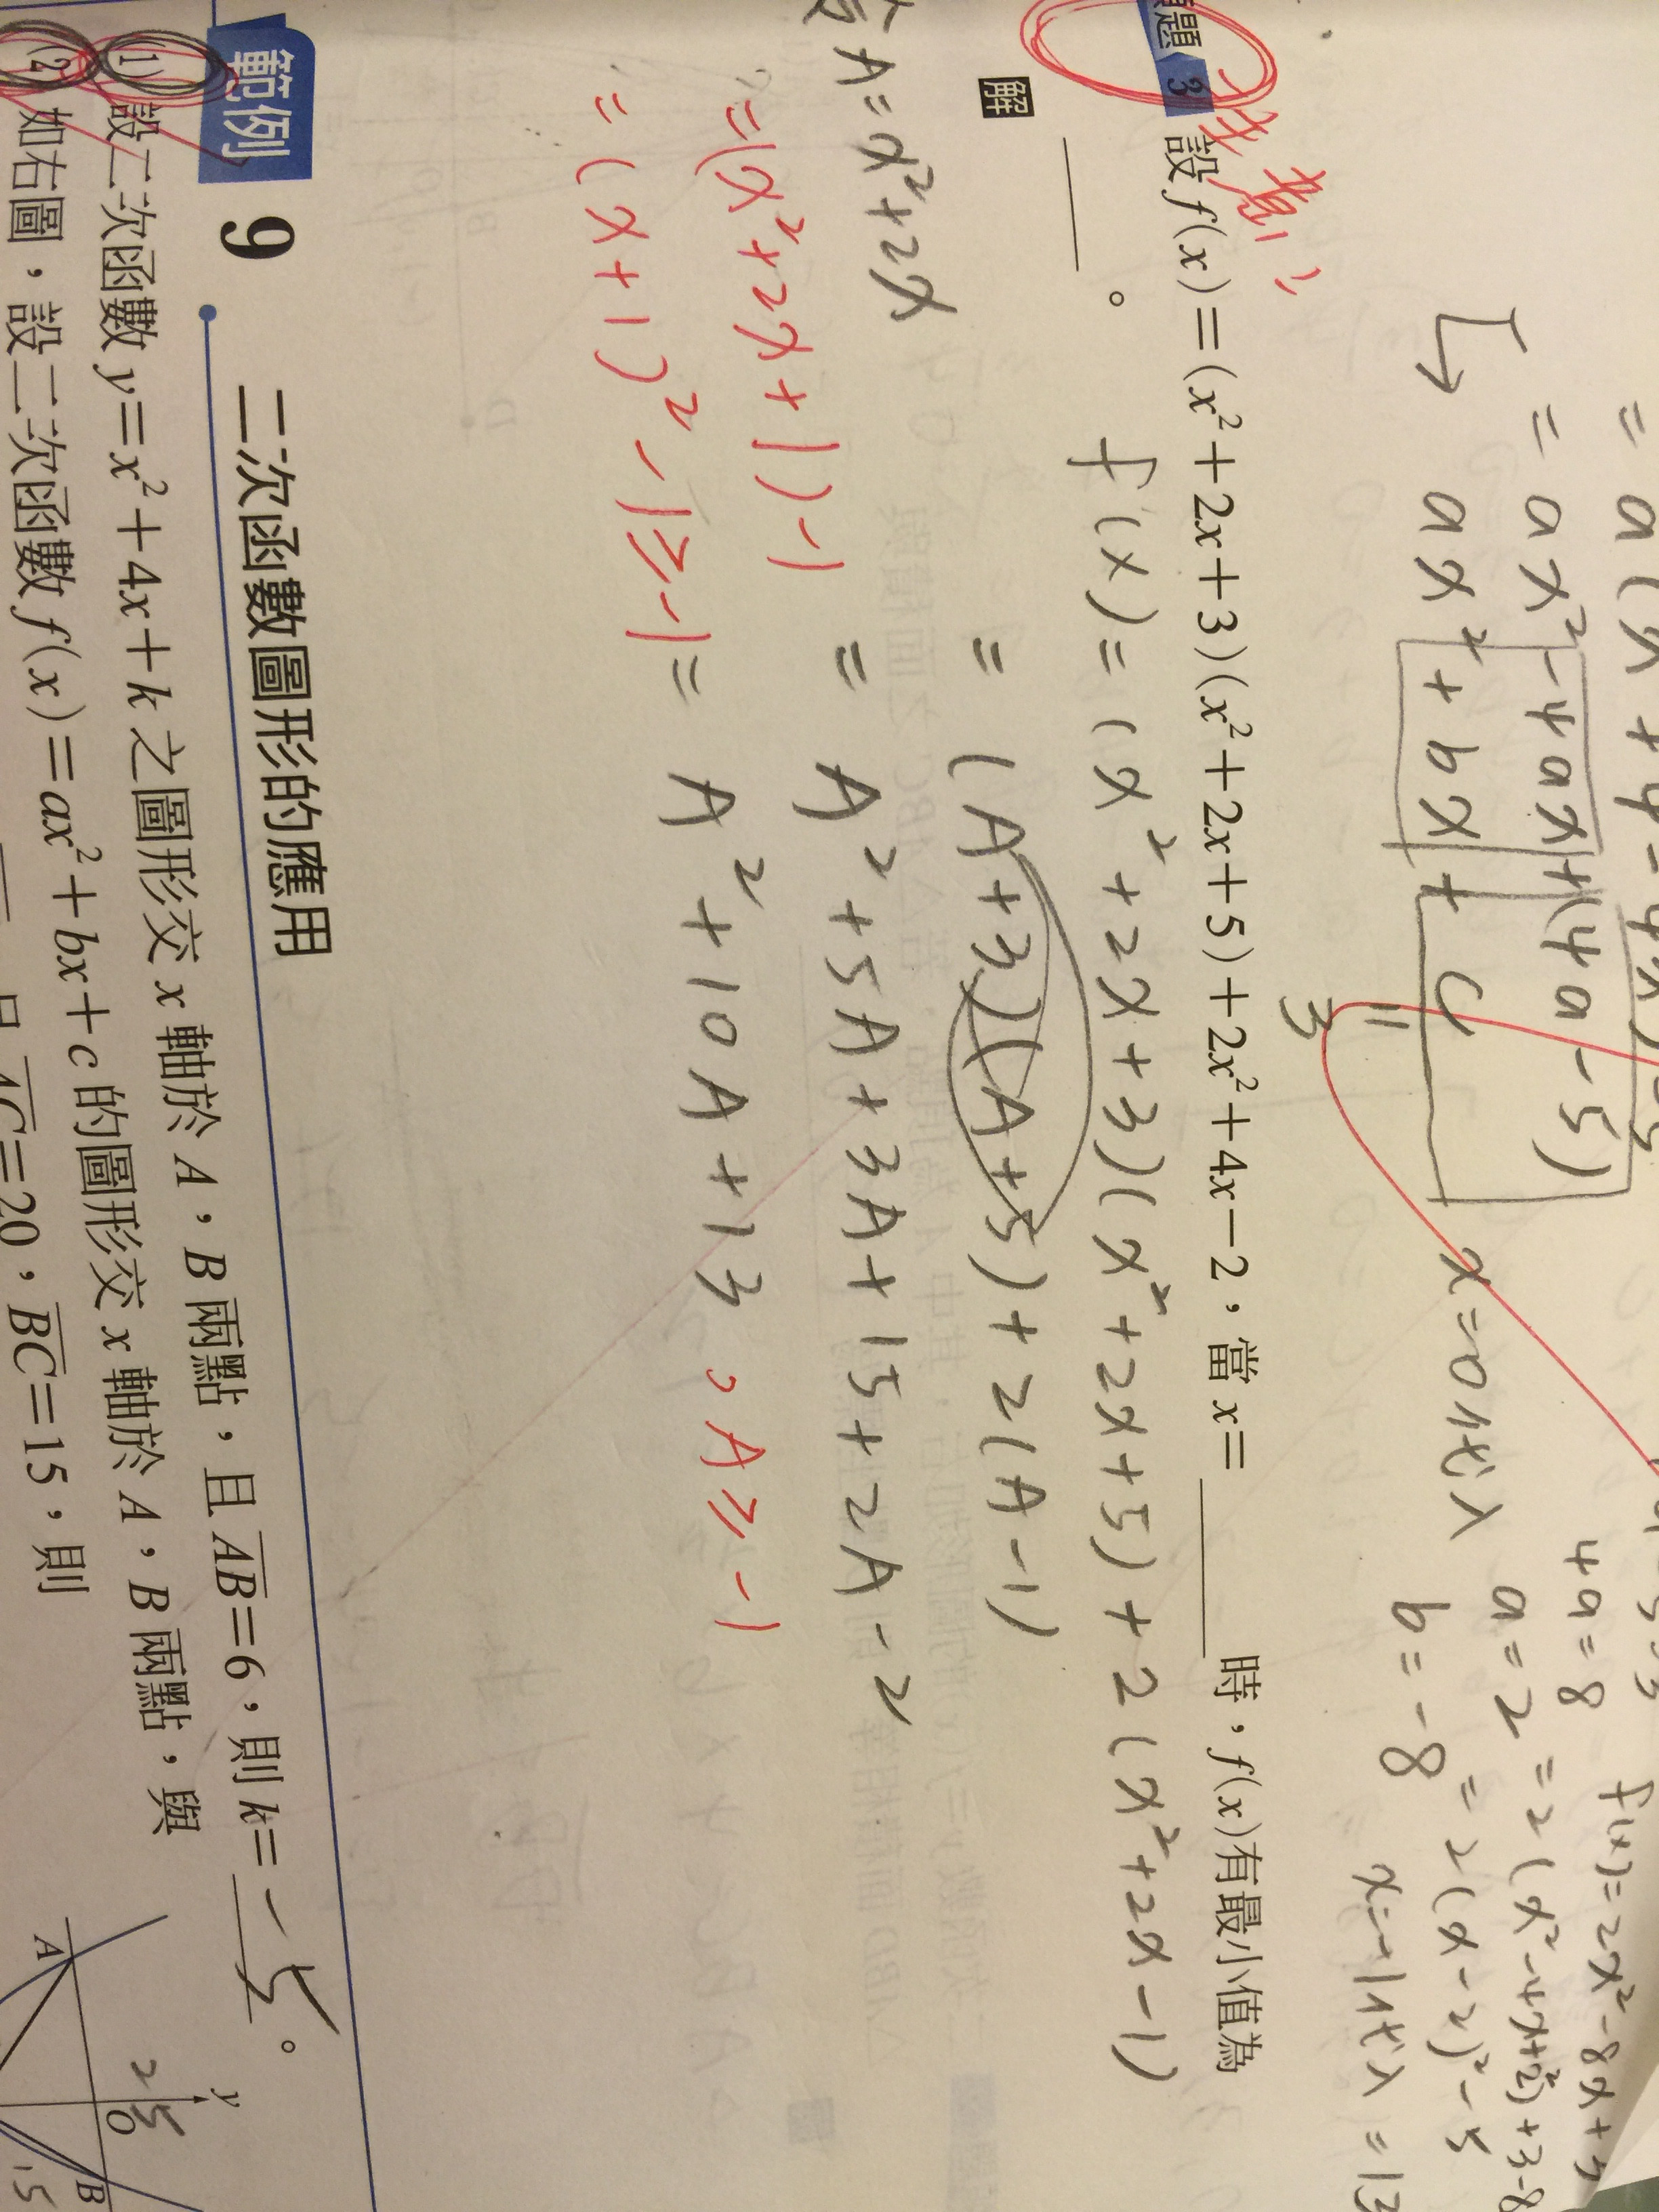 = ax² - 4ax + (4a - 5)
ax² + bx + c
= 3
x = 0 代入
4a = 8
a = 2
b = -8
f(x) = 2x² - 8x + 3
= 2(x² - 4x + 2²) + 3 - 8
= 2(x - 2)² - 5
x = -1 代入 = 13
題 3 設 f(x)=(x²+2x+3)(x²+2x+5)+2x²+4x-2,當 x=______時,f(x)有最小值為
______。
解
f(x) = (x² + 2x + 3)(x² + 2x + 5) + 2(x² + 2x - 1)
= (A + 3)(A + 5) + 2(A - 1)
A = x² + 2x
= A² + 5A + 3A + 15 + 2A - 2
= (x² + 2x + 1) - 1
= A² + 10A + 13 , A ≥ -1
= (x + 1)² - 1 ≥ -1
範例 9 二次函數圖形的應用
(1) 設二次函數 y=x²+4x+k 之圖形交 x 軸於 A,B 兩點,且 AB=6,則 k= -5 。
(2) 如右圖,設二次函數 f(x)=ax²+bx+c 的圖形交 x 軸於 A,B 兩點,與
AC=20,BC=15,則
y
A
O
B
25
15